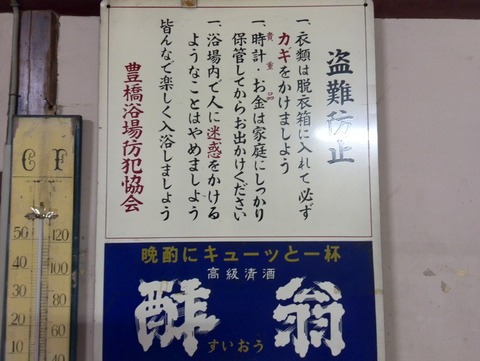 盗難防止
一、衣類は脱衣箱に入れて必ず
カギをかけましよう
貴重品
一、時計・お金は家庭にしっかり
保管してからお出かけください
一、浴場内で人に迷惑をかける
ようなことはやめましよう
皆んなで楽しく入浴しましょう
豊橋浴場防犯協会
晩酌にキューッと一杯
高級清酒
酔翁
すいおう
C F
50 120
40 100
30 80
20 60
10 40